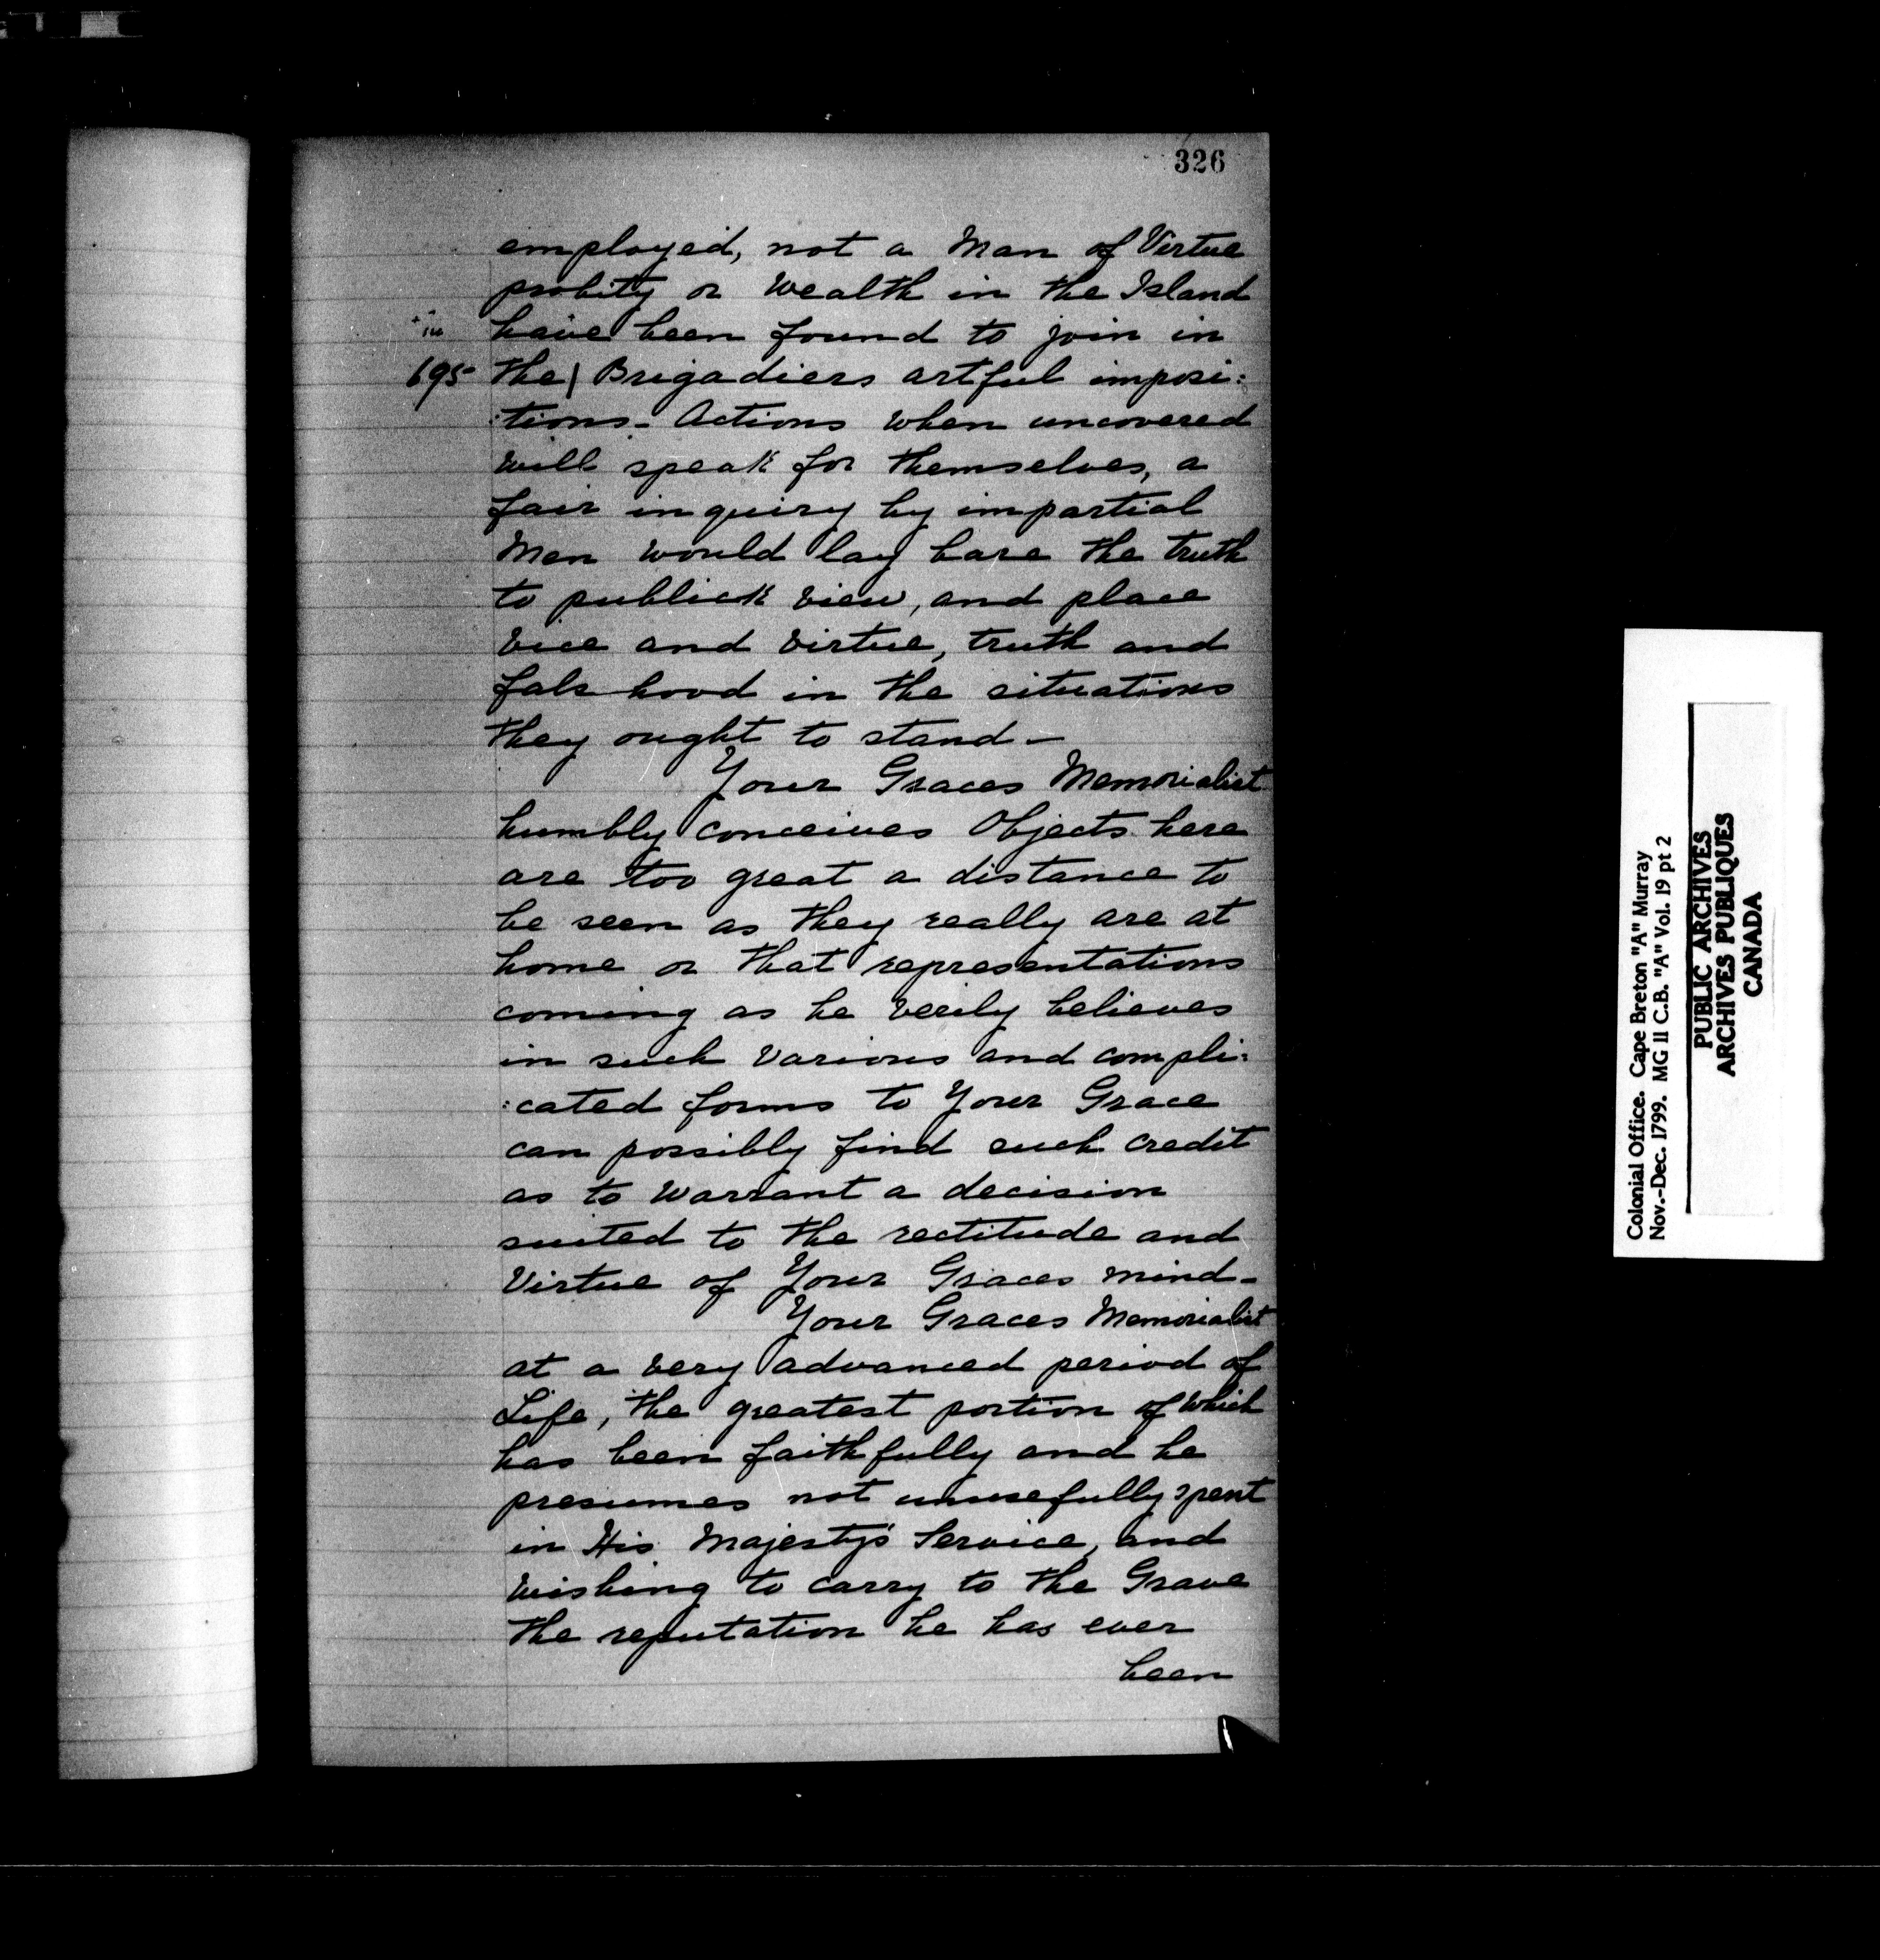 326
employed, not a Man of Virtue
probity or Wealth in the Island
in
have been found to join in
695 the| Brigadiers artful imposi:
:tions - Actions when uncovered
will speak for themselves, a
fair inquiry by impartial
Men would lay bare the truth
to publick view, and place
vice and virtue, truth and
fals hood in the situations
they ought to stand -
Your Graces Memorialist
humbly conceives Objects here
are too great a distance to
be seen as they really are at
home or that representations
coming as he verily believes
in such various and compli:
:cated forms to Your Grace
can possibly find such credit
as to warrant a decision
suited to the rectitude and
Virtue of Your Graces mind -
Your Graces Memorialist
at a very advanced period of
Life, the greatest portion of which
has been faithfully and he
presumes not unusefully spent
in His Majesty's Service, and
wishing to carry to the Grave
the reputation he has ever
been
Colonial Office. Cape Breton "A" Murray
Nov.-Dec. 1799. MG 11 C.B. "A" Vol. 19 pt 2
PUBLIC ARCHIVES
ARCHIVES PUBLIQUES
CANADA